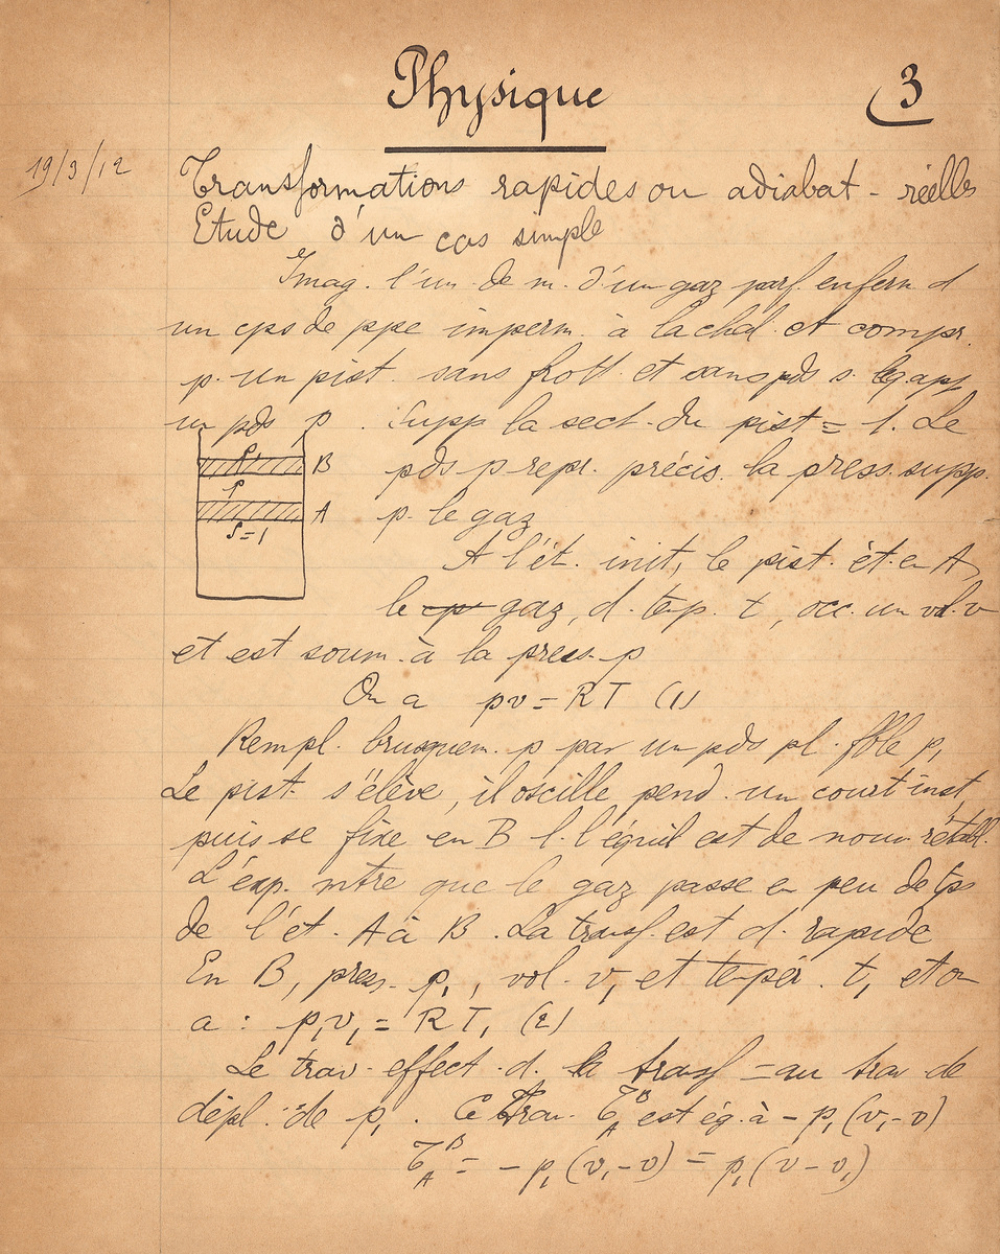 Physique
3
19/3/12
Transformations rapides ou adiabat - réelles
Etude d'un cas simple
Imag. l'un. de m. d'un gaz parf. enferm d
un cps de ppe imperm. à la chal. et compr.
p. un pist. sans frott. et sans pds s. leq. app.
un pds p. Supp la sect. du pist = 1. Le
pds p repr. précis. la press. supp.
p. le gaz
B
p
A
S=1
A l'ét. init, le pist. ét. en A,
le gaz, d. temp. t, occ. un vol. v
et est soum. à la press. p
On a pv = RT (1)
Rempl. brusquem. p par un pds pl. fble p₁
Le pist. s'élève, il oscille pend. un court inst
puis se fixe en B l. l'équil est de nouv. rétabl.
L'exp. mtre que le gaz passe en peu de tps
de l'ét. A à B. La transf. est d. rapide
En B, press. p₁, vol. v₁ et tempér. t₁ et on
a : p₁v₁ = RT₁ (2)
Le trav. effect. d. la transf = au trav de
dépl. de p₁. Ce trav. 𝒯ₐᴮ est ég. à - p₁(v₁-v)
𝒯ₐᴮ = - p₁(v₁-v) = p₁(v-v₁)